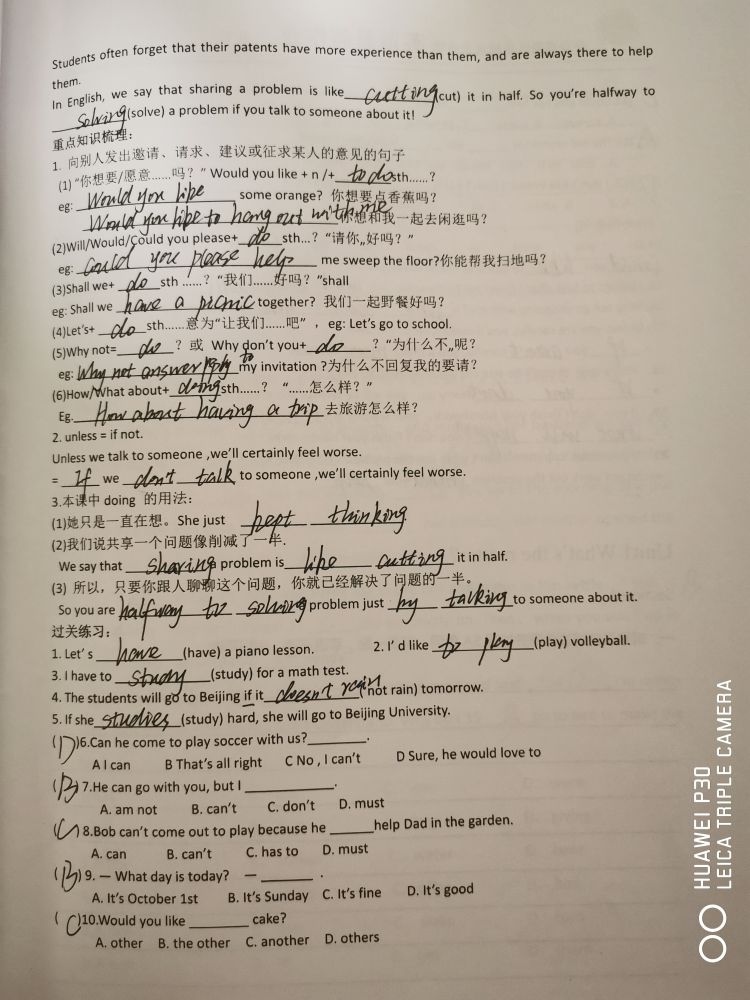 Students often forget that their patents have more experience than them, and are always there to help
them.
In English, we say that sharing a problem is like cutting(cut) it in half. So you're halfway to
Solving(solve) a problem if you talk to someone about it!
重点知识梳理：
1. 向别人发出邀请、请求、建议或征求某人的意见的句子
(1) “你想要/愿意……吗？” Would you like + n /+ to do sth……?
eg: Would you like some orange? 你想要点香蕉吗？
Would you like to hang out with me 你想和我一起去闲逛吗？
(2)Will/Would/Could you please+ do sth…? “请你„好吗？”
eg: Could you please help me sweep the floor?你能帮我扫地吗？
(3)Shall we+ do sth ……? “我们……好吗？”shall
eg: Shall we have a picnic together? 我们一起野餐好吗？
(4)Let's+ do sth……意为“让我们……吧”，eg: Let's go to school.
(5)Why not= do ? 或 Why don't you+ do ? “为什么不„呢？
eg: Why not answer/reply to my invitation ?为什么不回复我的要请？
(6)How/What about+ doing sth……? “……怎么样？”
Eg. How about having a trip 去旅游怎么样？
2. unless = if not.
Unless we talk to someone ,we'll certainly feel worse.
= If we don't talk to someone ,we'll certainly feel worse.
3.本课中 doing 的用法：
(1)她只是一直在想。She just kept thinking
(2)我们说共享一个问题像削减了一半.
We say that sharing problem is like cutting it in half.
(3) 所以，只要你跟人聊聊这个问题，你就已经解决了问题的一半。
So you are halfway to solving problem just by talking to someone about it.
过关练习：
1. Let' s have (have) a piano lesson. 2. I' d like to play (play) volleyball.
3. I have to study (study) for a math test.
4. The students will go to Beijing if it doesn't rain (not rain) tomorrow.
5. If she studies (study) hard, she will go to Beijing University.
(D)6.Can he come to play soccer with us?________.
A I can B That's all right C No , I can't D Sure, he would love to
(B)7.He can go with you, but I ____________.
A. am not B. can't C. don't D. must
(C)8.Bob can't come out to play because he ______help Dad in the garden.
A. can B. can't C. has to D. must
(B) 9. — What day is today? — ________ .
A. It's October 1st B. It's Sunday C. It's fine D. It's good
(C)10.Would you like ________ cake?
A. other B. the other C. another D. others
HUAWEI P30
LEICA TRIPLE CAMERA